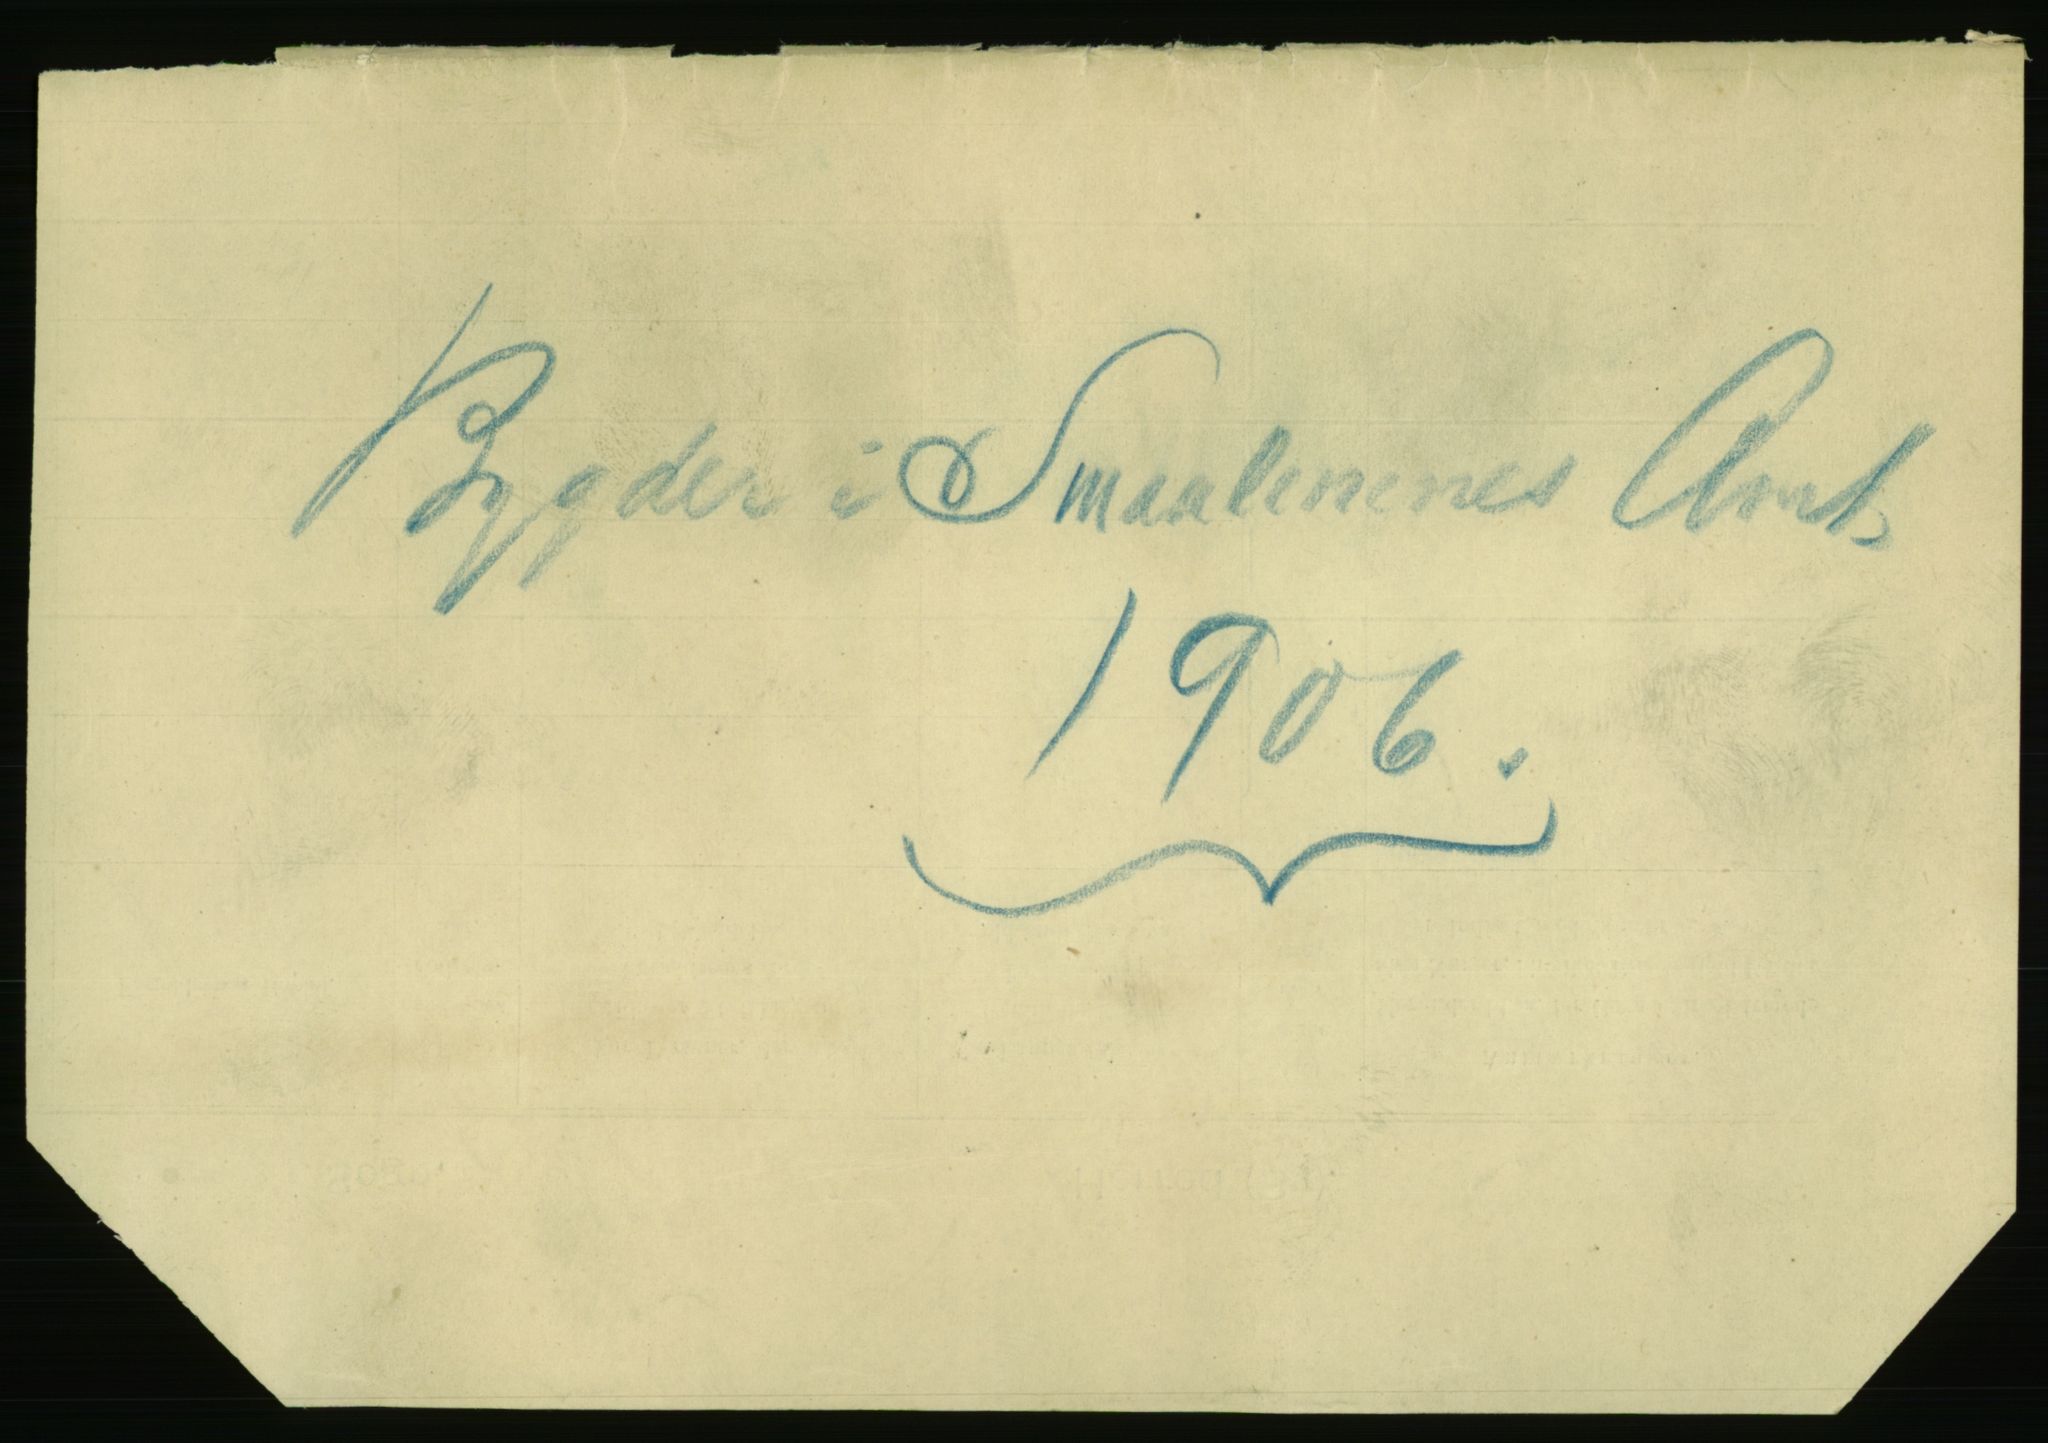 Bygder i Smaalenenes Amt
1906.